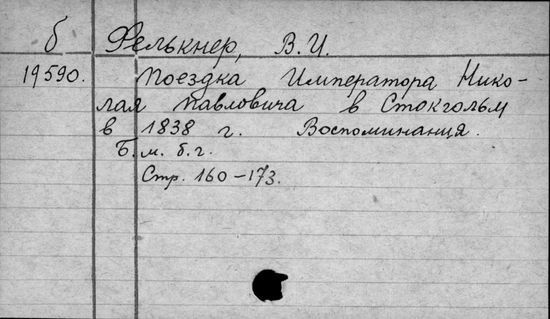 б Фелькнер, В.И.
19590. Поездка Императора Нико-
лая Павловича в Стокгольм
в 1838 г. Воспоминания.
Б.м. б.г.
Стр. 160-173.